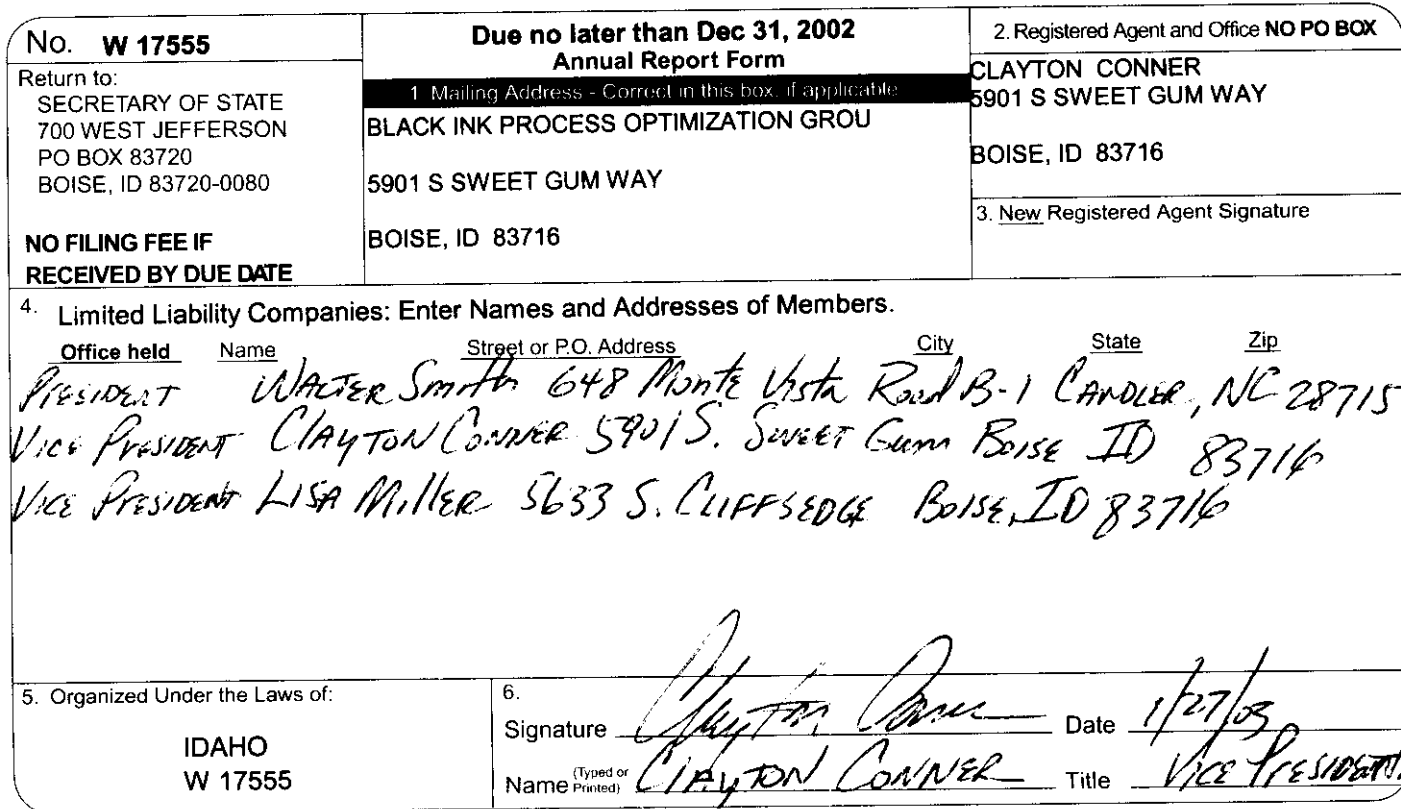 No. W 17555
Return to:
SECRETARY OF STATE
700 WEST JEFFERSON
PO BOX 83720
BOISE, ID 83720-0080
NO FILING FEE IF
RECEIVED BY DUE DATE
Due no later than Dec 31, 2002
Annual Report Form
1 Mailing Address - Correct in this box, if applicable
BLACK INK PROCESS OPTIMIZATION GROU
5901 S SWEET GUM WAY
BOISE, ID 83716
2. Registered Agent and Office NO PO BOX
CLAYTON CONNER
5901 S SWEET GUM WAY
BOISE, ID 83716
3. New Registered Agent Signature
4. Limited Liability Companies: Enter Names and Addresses of Members.
Office held Name Street or P.O. Address City State Zip
PRESIDENT WALTER Smith 648 Monte Vista Road B-1 CANDLER, NC 28715
VICE PRESIDENT CLAYTON CONNER 5901 S. SWEET Gum BOISE ID 83716
VICE PRESIDENT LISA MILLER 5633 S. CLIFFSEDGE BOISE, ID 83716
5. Organized Under the Laws of:
IDAHO
W 17555
6.
Signature Clayton Conner Date 1/27/03
Name (Typed or Printed) CLAYTON CONNER Title VICE PRESIDENT